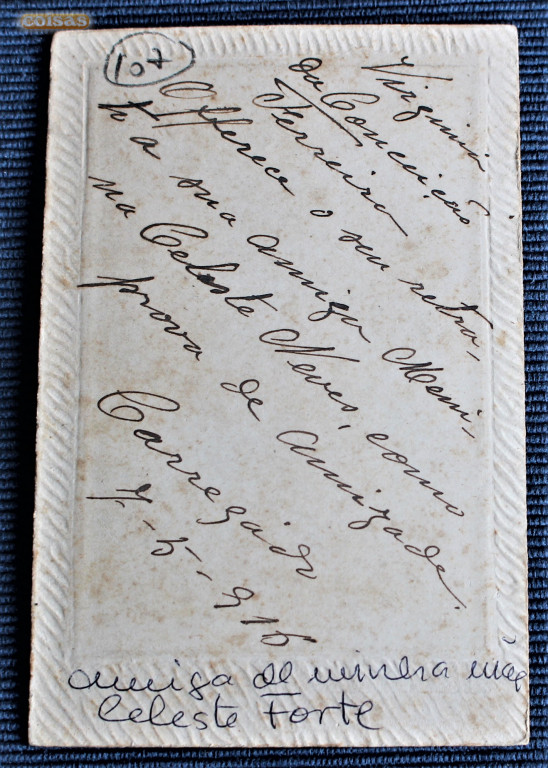 coisas
107
Virginia
da Conceição
Ferreira
Offerece o seu retra-
to a sua amiga Meni-
na Celeste Neves, como
prova de amizade.
Carregado
7-5-916
amiga de minha mãe
Celeste Forte